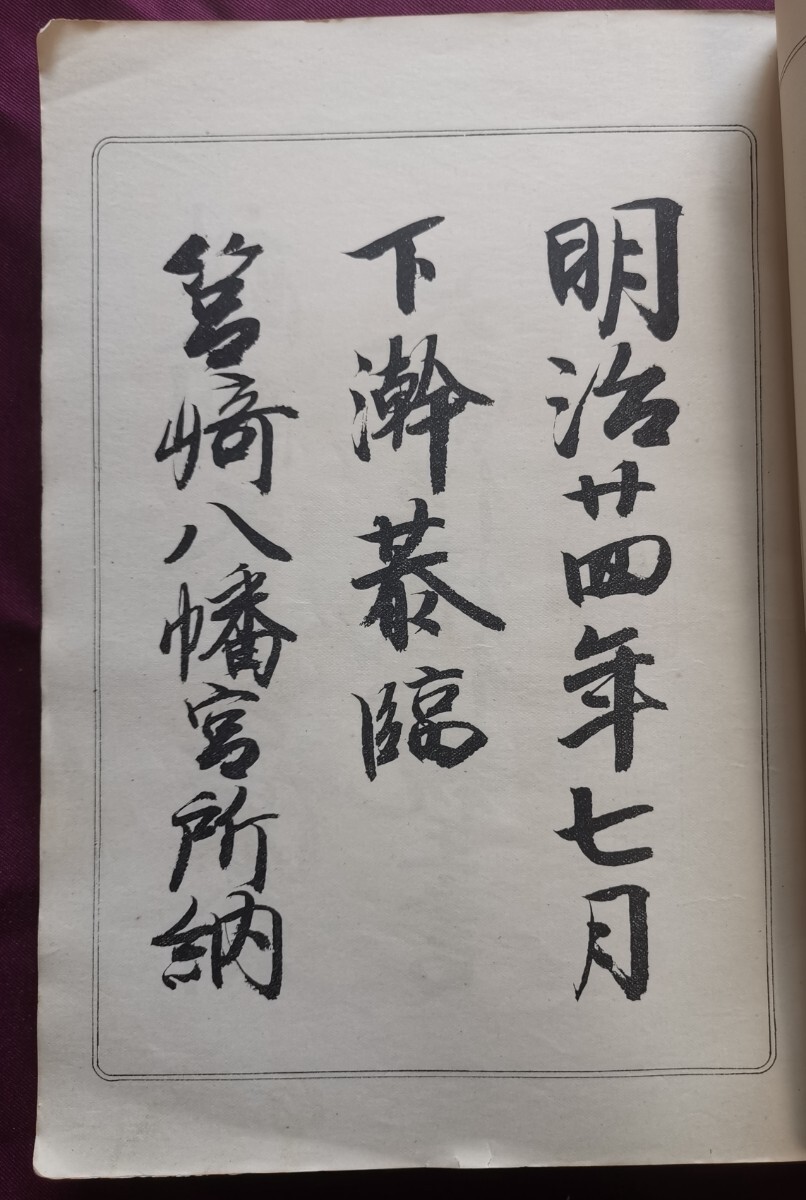 明治廿四年七月
下澣恭臨
筥﨑八幡宮所納